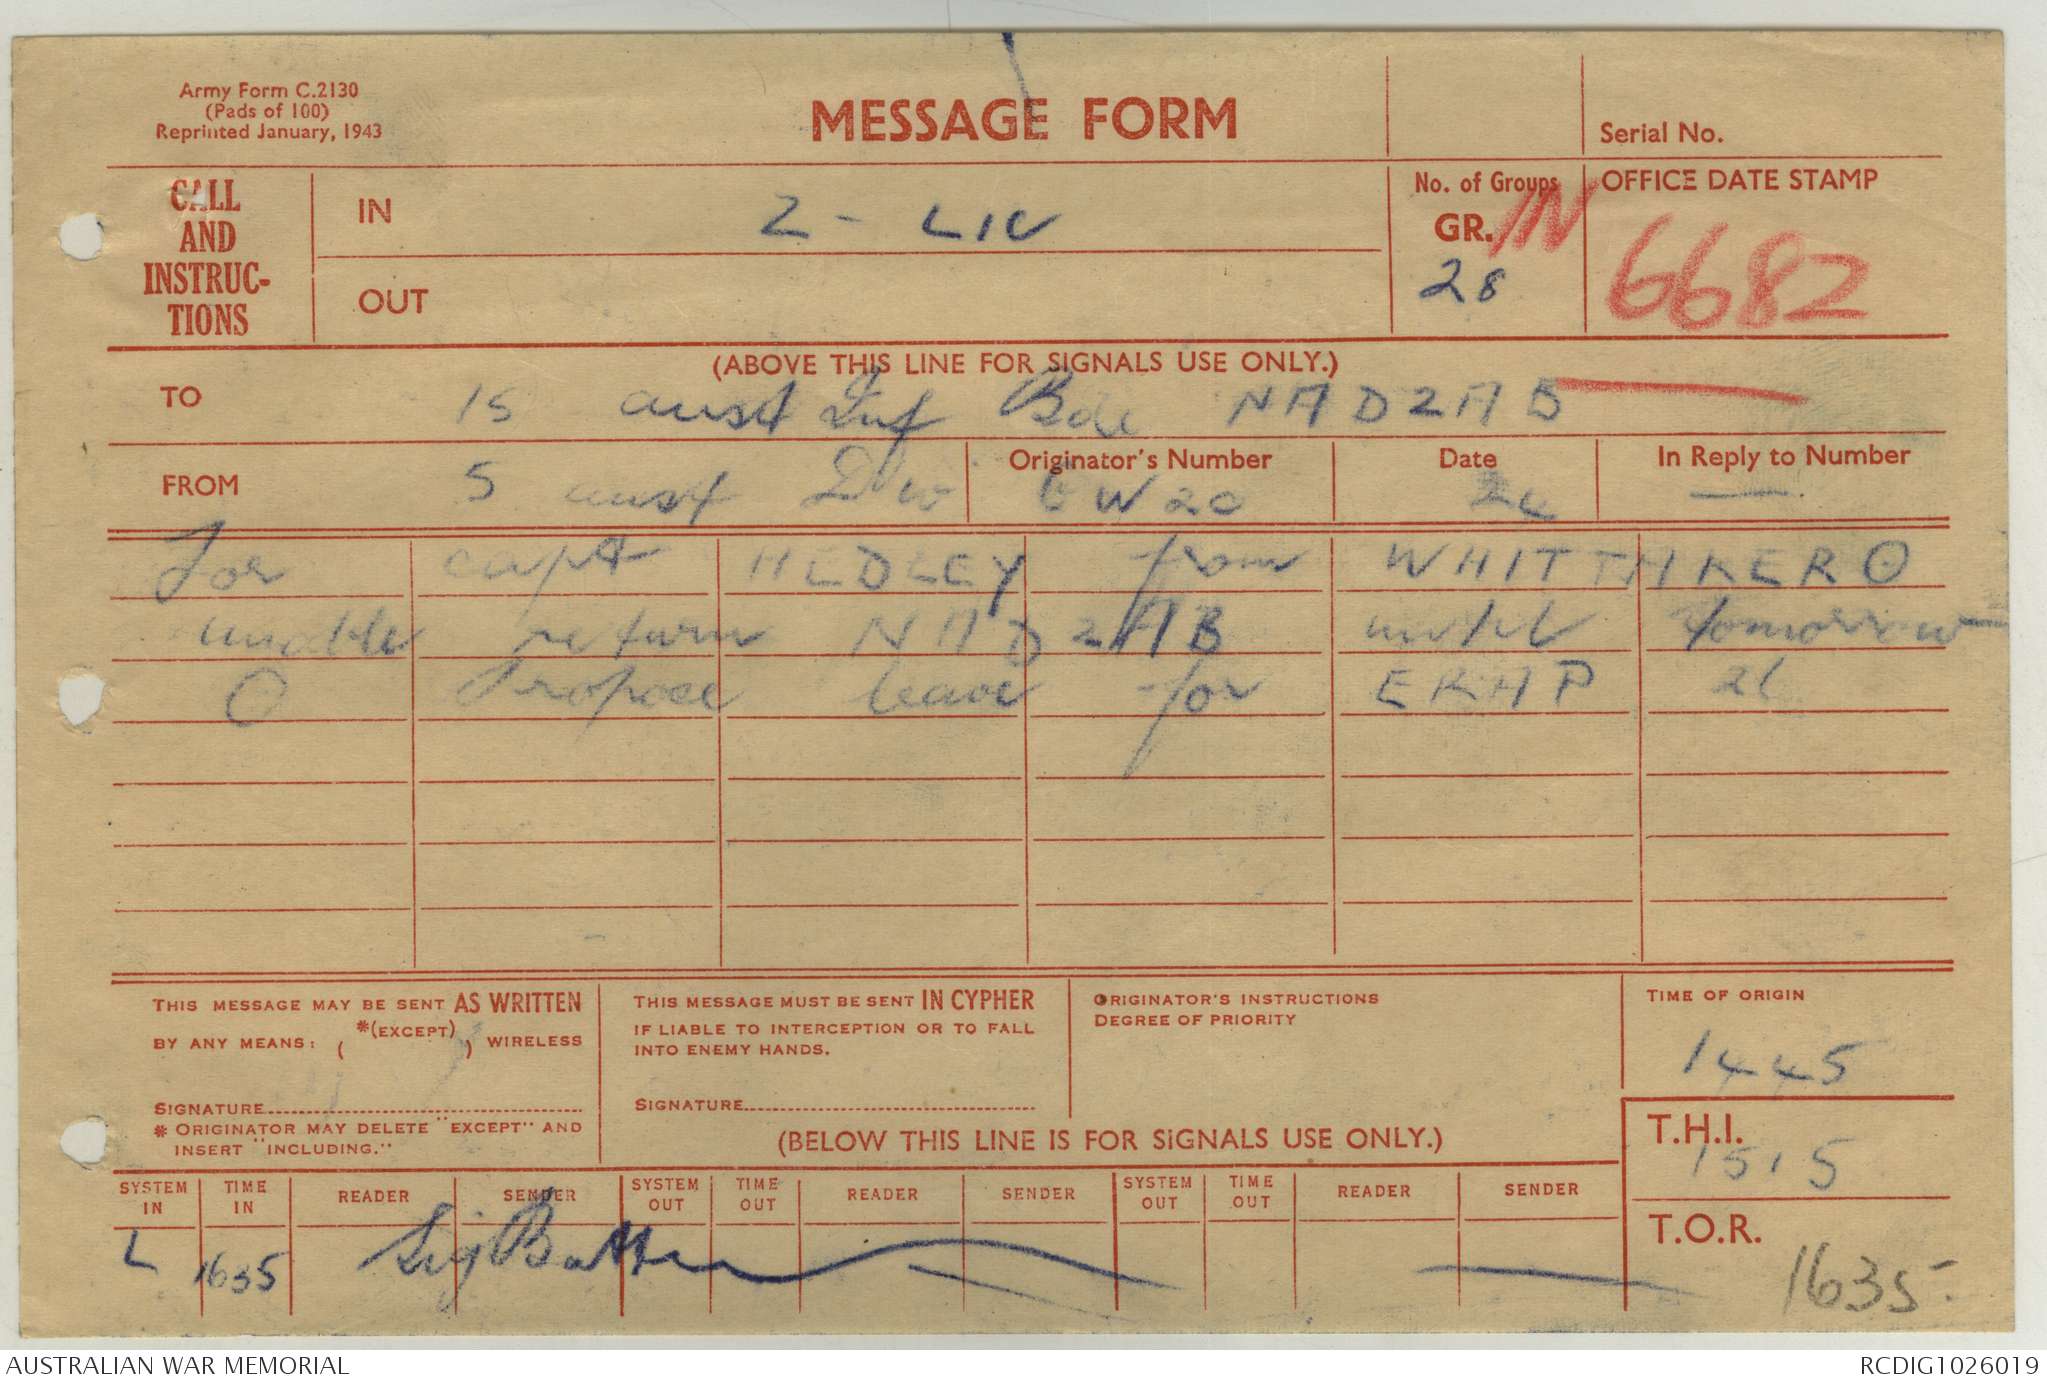 Army Form C.2130
(Pads of 100)
Reprinted January, 1943
MESSAGE FORM
Serial No.
CALL
AND
INSTRUC-
TIONS
IN
Z - LIV
OUT
No. of Groups
GR.
28
OFFICE DATE STAMP
IN
6682
(ABOVE THIS LINE FOR SIGNALS USE ONLY.)
TO 15 aust Inf Bde NADZAB
FROM 5 aust Div
Originator's Number
GW20
Date
24
In Reply to Number
—
For capt HEDLEY from WHITTAKER O
unable return NADZAB until tomorrow
O Propose leave for ERAP 26
THIS MESSAGE MAY BE SENT AS WRITTEN
BY ANY MEANS: ( *(EXCEPT) ) WIRELESS
SIGNATURE
* ORIGINATOR MAY DELETE "EXCEPT" AND
INSERT "INCLUDING."
THIS MESSAGE MUST BE SENT IN CYPHER
IF LIABLE TO INTERCEPTION OR TO FALL
INTO ENEMY HANDS.
SIGNATURE
ORIGINATOR'S INSTRUCTIONS
DEGREE OF PRIORITY
TIME OF ORIGIN
1445
(BELOW THIS LINE IS FOR SIGNALS USE ONLY.)
T.H.I.
1515
T.O.R.
1635
SYSTEM IN TIME IN READER SENDER SYSTEM OUT TIME OUT READER SENDER SYSTEM OUT TIME OUT READER SENDER
L 1635 Sig
AUSTRALIAN WAR MEMORIAL
RCDIG1026019